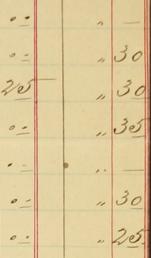 " " „ —
" " „ 30
25 — „ 30
" " „ 35
" " „ —
" " „ 30
" " „ 25